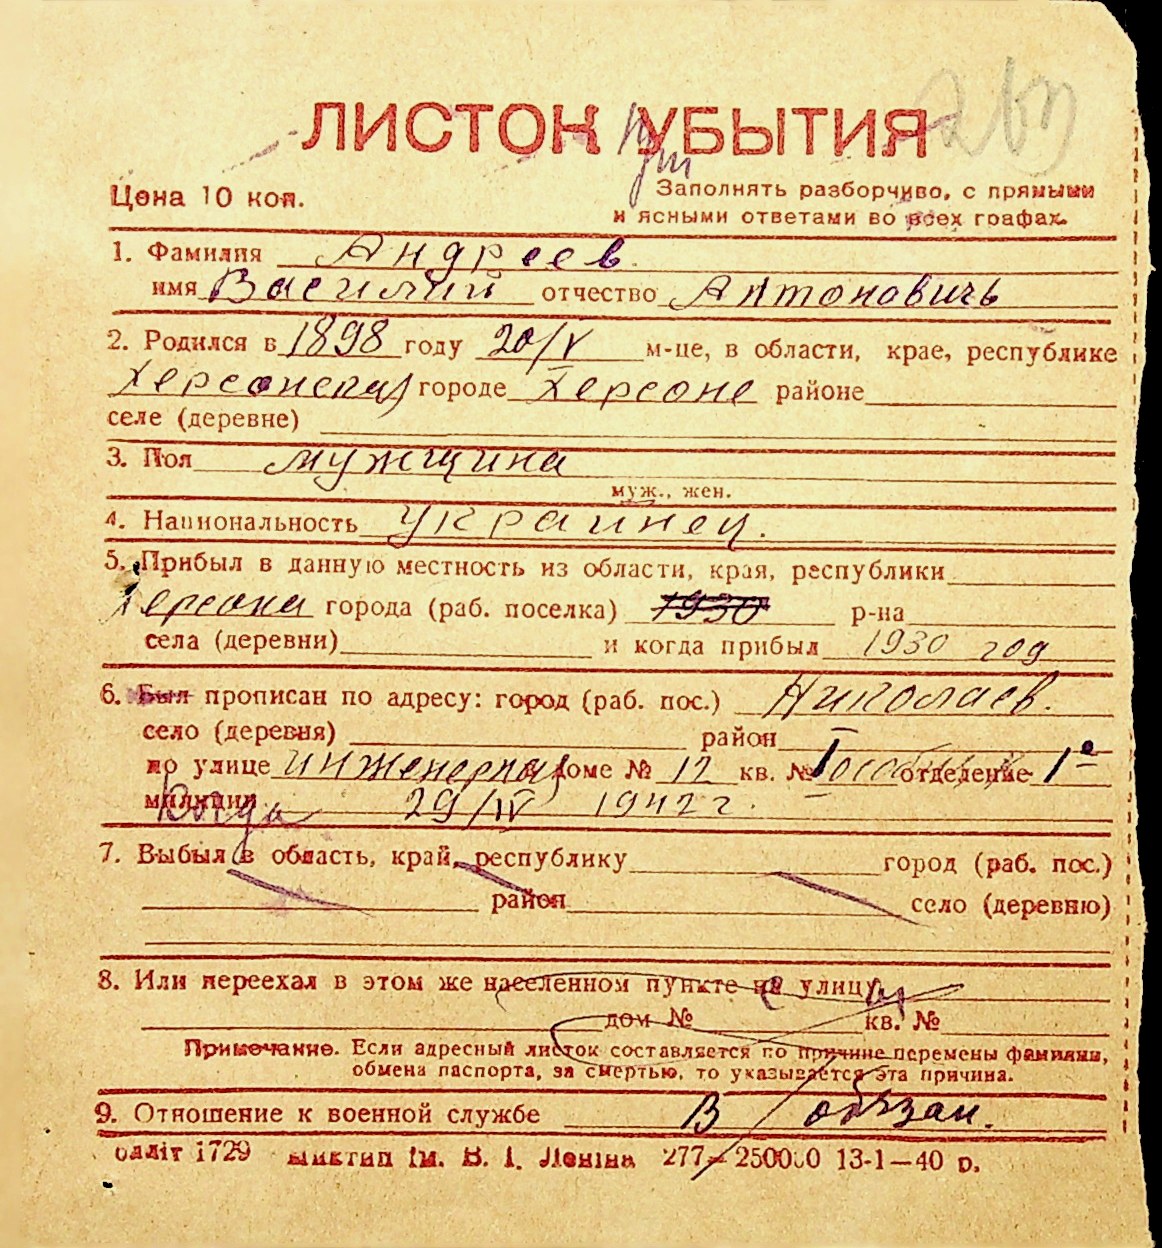 ЛИСТОК УБЫТИЯ
Цена 10 коп.
Заполнять разборчиво, с прямыми
и ясными ответами во всех графах.
1. Фамилия Андреев.
имя Василий отчество Антоновичь
2. Родился в 1898 году 20/V м-це, в области, крае, республике
Херсонская городе Херсоне районе
селе (деревне)
3. Пол мужщина
муж., жен.
4. Национальность украинец.
5. Прибыл в данную местность из области, края, республики
Херсона города (раб. поселка) 1930 р-на
села (деревни) и когда прибыл 1930 год
6. Был прописан по адресу: город (раб. пос.) Николаев.
село (деревня) район I
по улице инженерная доме № 12 кв. № отделение 1е
милиции Когда 29/IV 1942 г.
7. Выбыл в область, край, республику город (раб. пос.)
район село (деревню)
8. Или переехал в этом же населенном пункте на улицу
дом № кв. №
Примечание. Если адресный листок составляется по причине перемены фамилии,
обмена паспорта, за смертью, то указывается эта причина.
9. Отношение к военной службе В/обязан.
олліт 1729 Миктип ім. В. І. Леніна 277—250000 13-1—40 р.